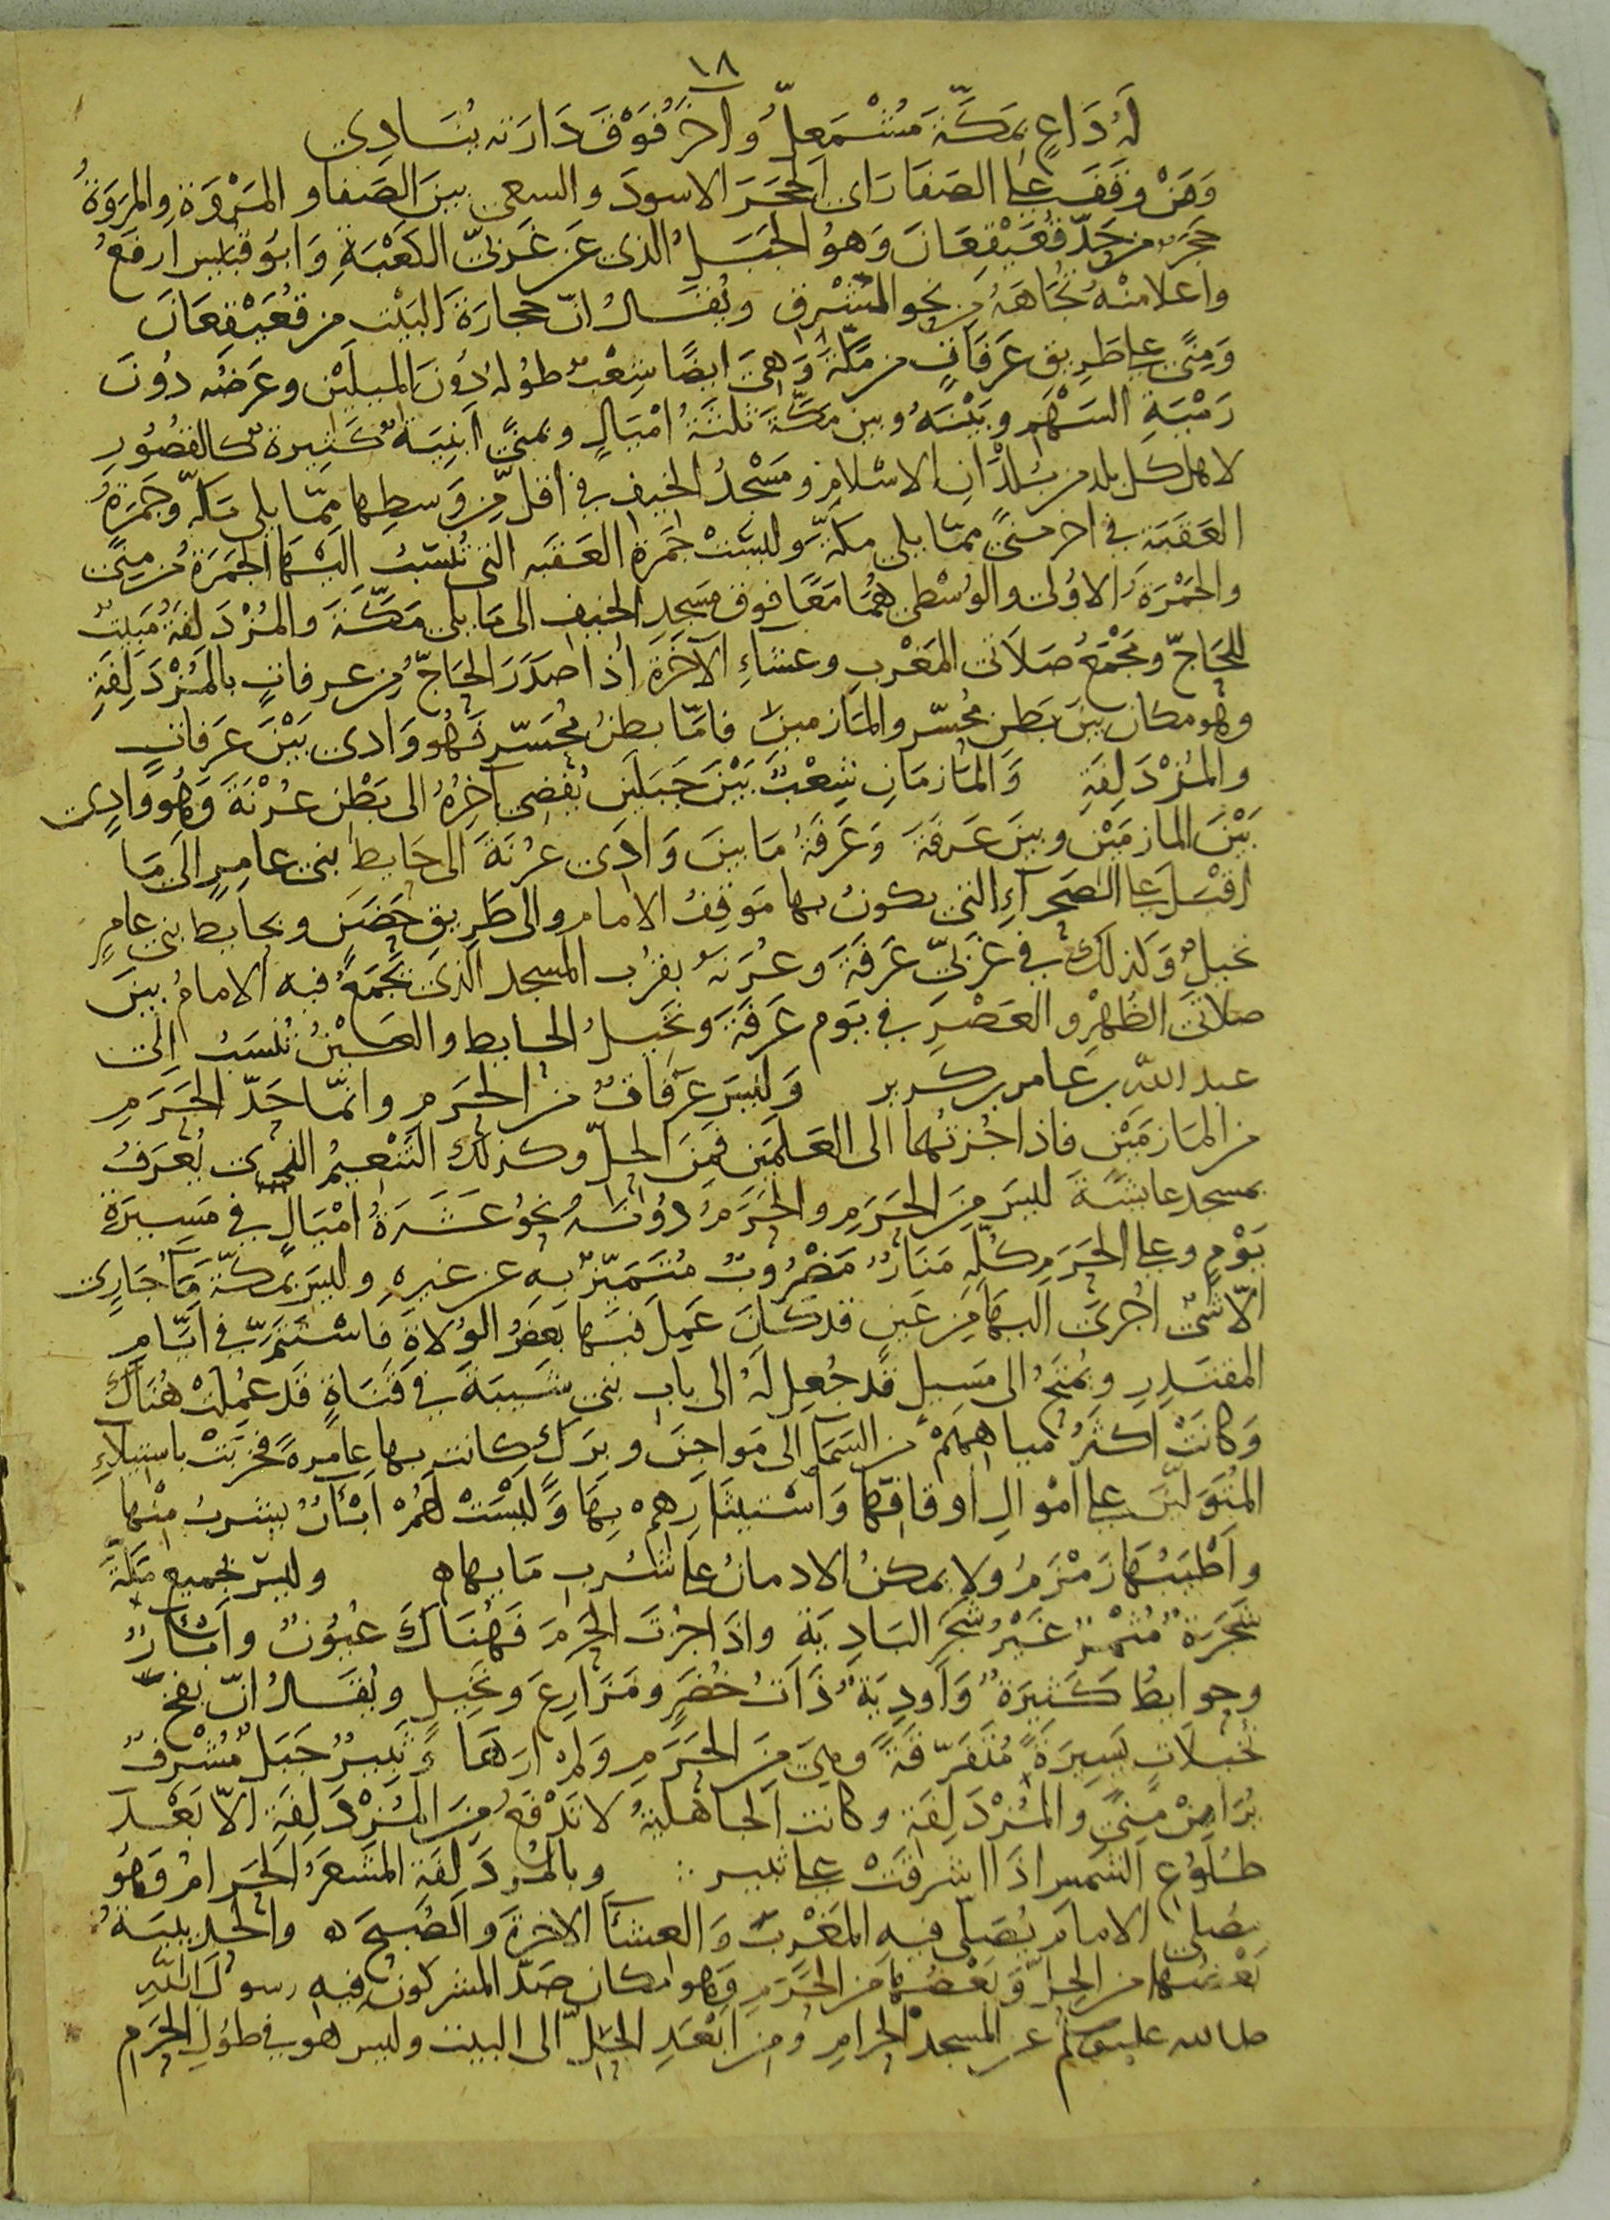 ١٨
لَهُ دَاعٍ بمَكّةَ مُشْمَعِلٌّ وآخَرُ فَوْقَ دَارَتهِ يُنَادِي
وَمَنْ وقَفَ على الصَفا رَاى الحَجَرَ الاسودَ والسعى بينَ الصَفا و المَرْوَة والمَرَوَةُ
حَجَرٌ من حَدّ قُعَيْقِعَانَ وَهوُ الجَبَل الذى عن غَربىّ الكَعْبَةِ وَابوَ قبَيس ارفَعُ
واعلا منْهُ تُجَاهَهُ من نحو المشْرقِ ويُقَالُ انّ حجارَةَ البَيْتِ من قُعَيْقعَانَ
وَمِنًى على طَرِيق عَرَفَاتٍ من مَكّةَ وَهىَ ايضًا شِعْبٌ طُوُلهُ دُونَ الميلَيْن وعَرضُه دوُنَ
رَمْيَةِ السَهْمِ وبَيْنَهُ وبين مَكّةَ ثلثَةُ امْيَالٍ وبمنًى ابْنِيَةٌ كَثِيرةٌ كالقصُوُرِ
لاهل كل بلد من بُلدْانِ الاسْلامِ ومَسْجدُ الخيف فى اقلّ من وَسطِها ممّا يلى مَكّة وجَمْرَةُ
العَقَبَة فى اخر منًى ممّا يلى مكّةَ وليسَتْ جَمْرة العَقَبَه التى تُنْسَبُ اليْهَا الجَمَرَة من منًى
والجَمْرَة الاوُلى والوُسْطى هُمَا مَعًا فوق مَسجد الخيف الى مَا يلى مَكّةَ والمُزْدَلِفَةُ مَبيتٌ
للحَاجّ ومَجْمَعُ صَلاتى المَغْربِ وعشاءِ الآخَرَةِ اذا صَدَرَ الحَاجّ من عرفاتٍ بالمُزْدَلِفَةِ
وهو مكان بينَ بَطن مُحسّر والمَازمينِ فامّا بطنُ مُحَسّرٍ فَهُو وَادى بَيْنَ عَرَفاتٍ
والمُزْدَلِفَةِ وَالمازمَانِ شِعْبٌ بَيْنَ جَبَلَين يُفضى آخرُهُ الى بَطْن عُرْنَةَ وَهُو وَادِى
بَيْنَ المازمَيْن وبينَ عَرفَةَ وَعَرَفَةُ مَا بينَ وَادَى عُرْنَةَ الى حَايط بنى عامِرٍ الى مَا
اقبَلَ على الصَحرآءِ التى يكونُ بها مَوْقِفُ الامام والى طَريقِ حَضَنٍ وبحايط بنى عامرٍ
نخيلٌ وَكذلكَ فى غَربىّ عَرَفَةَ وعُرْنَةَ بقرْب المَسجد الذى يَجْمَعُ فيه الامامُ بينَ
صَلاتَى الظُهْرِ والعَصْرِ فى يَوم عَرَفَةَ ونَخيلُ الحايط والعَيْنُ تُنْسَبُ الى
عبد اللهِ بن عامر بن كريز وَليسَ عَرَفَاتٌ من الحَرَمِ وانّما حَدّ الحَرَمِ
من المَازمَيْن فاذا جُزتَهُما الى العَلَمَيْن فمن الحلّ وكذلك التَنْعيمُ الذى يُعرَفُ
بمَسجد عايشَةَ ليسَ من الحَرَمِ والحَرَمُ دوُنَهُ نحوُ عَشَرَةُ امْيَالٍ فى مَسيرَة
يَوْم وعلى الحَرَمِ كُلّه مَنَارٌ مَضْرُوبٌ مُتَمَيّزٌ بهِ عن غيرهِ وليس بمكّةَ مَآ جَارِى
الّا شىٌ اُجْرىَ اليهَا من عَينٍ قد كَانَ عَمِلَ فيْهَا بَعَضُ الوُلاة فاسْتتمّ فى ايّام
المقتَدِرِ ويُمْنَحُ الى مَسيلٍ قَد جُعِلَ لَهُ الى باب بَنى شَيبَةَ فى قَنَاةٍ قد عُمِلَتْ هُنَاك
وَكَانَتْ اكثَرُ مياههمْ من السَمآ الى مَواجِنَ وبرَك كانت بها عامرةً فخَربَتْ باستيلآءِ
المُتَوَلّيَنَ على امْوالِ اوقافهَا وَاسْتيثَارهمْ بهَا وَليْسَتْ لَهُمْ ابْئارٌ يشربُ منْها
واطْيَبُهَا زَمْزَمُ ولا يمكنُ الادمانُ على شُربِ مَايهاه وليسَ بجميعِ مَكّةَ
شَجَرَةٌ مُثْمرٌ غَيْرُ شَجَرِ البَاديَةِ واذا جُزتَ الحَرَمَ فَهُنَاكَ عُيوُنٌ وابْئارٌ
وحوايطُ كَثيرَةٌ وَاوْديَةٌ ذَاتُ خُضَرٍ ومَزارِعَ ونَخيلٍ ويُقَالُ انّ بفخّ
نُخيلَاتٍ يَسِيرَةً مُتَفَرّقَةً وهىَ منَ الحَرَمِ وَلم ارَهَا وَثَبيرُ جَبَلٌ مُشْرفٌ
يُرَا منْ منًى والمُزْدَلِفَة وكانت الجَاهليّةُ لا تَدْفَعُ منَ المُزْدَلِفَةِ الّا بَعْدَ
طُلُوُعِ الشَمس اذا اشرقَتْ على ثبير ∴ وبالمُزدَلِفَة المَشْعَرُ الحَرامُ وَهُو
مُصَلى الامامِ يُصَلى فيه المَغْربَ وَالعشآ الاخرَةَ والصُبحَ ه والحُدَيْبيَةُ
بَعْضُها من الحِلّ وَبَعْضُهَا من الحَرَمِ وَهو مكان صَدّ المشركونَ فيه رسوُلَ اللهِ
صلى الله عليه وسلم عن المَسجد الحرامِ ومن ابْعَدِ الحلّ الى البيت وليس هو فى طوُلِ الحَرَمِ